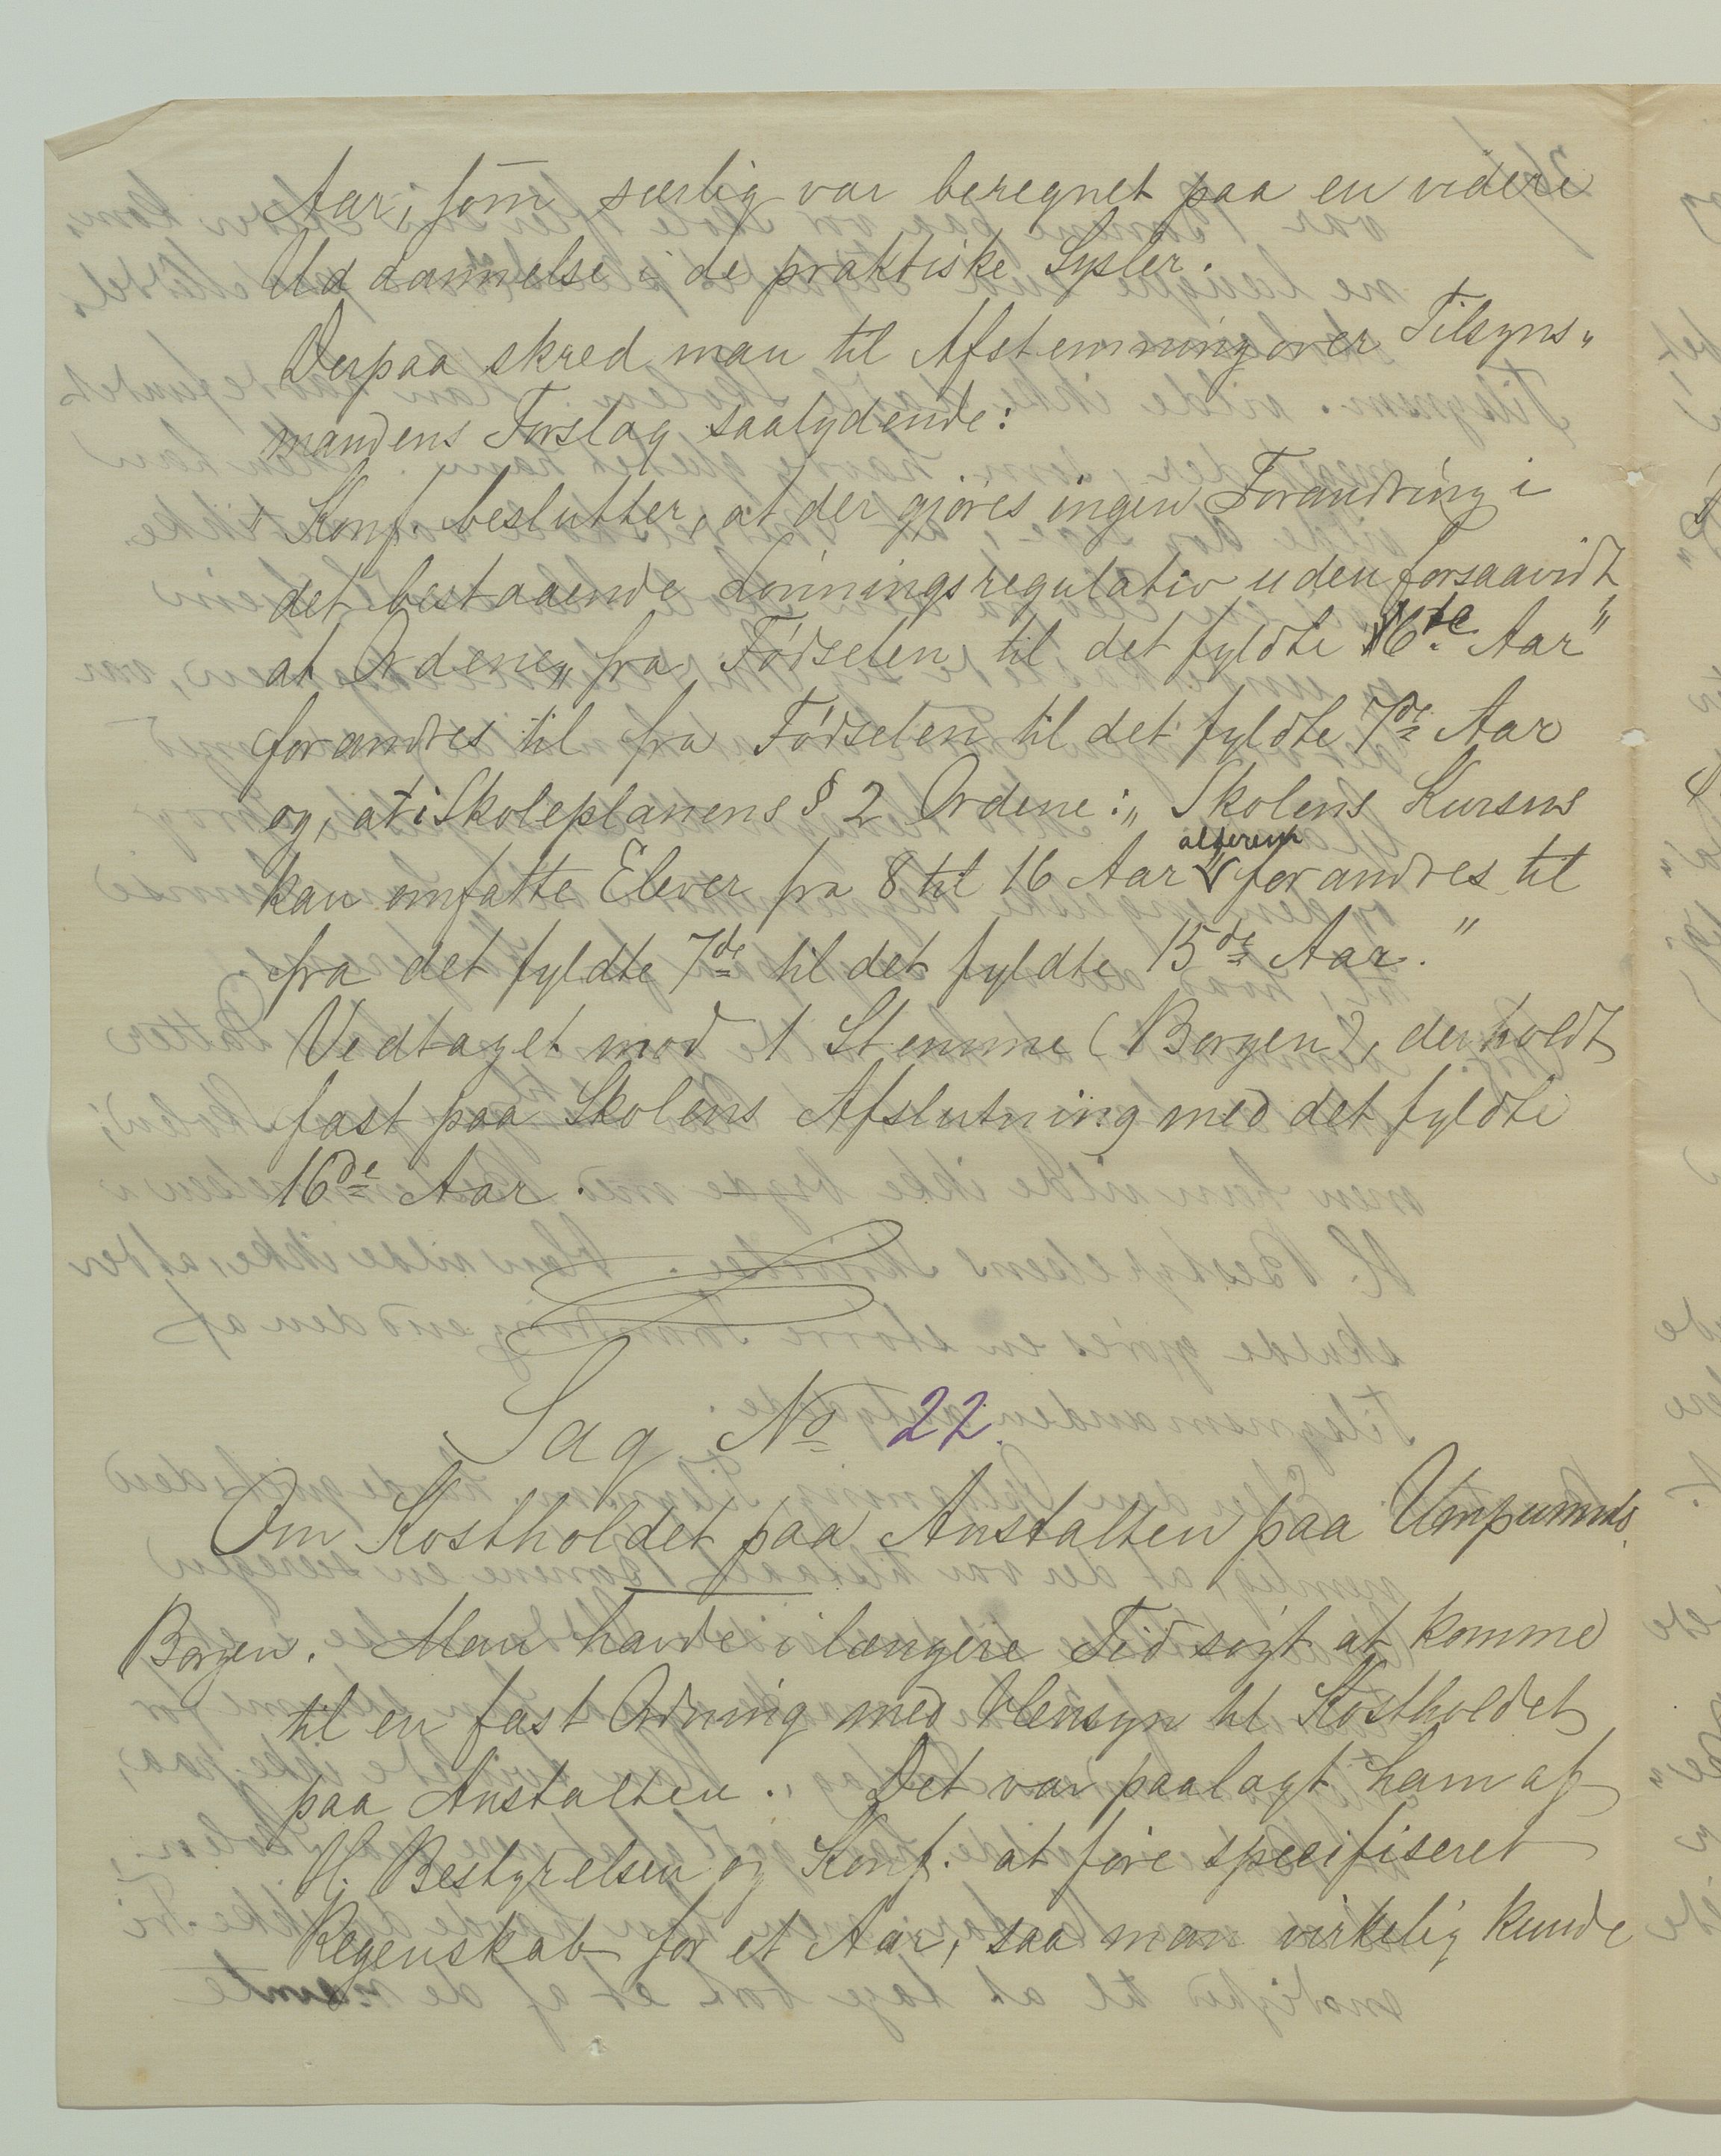 Aar, som særlig var beregnet paa en videre
Uddannelse i de praktiske Sysler.
Derpaa skred man til Afstemning over Tilsyns„
mandens Forslag saalydende:
„Konf. beslutter, at der gjøres ingen Forandring i
det bestaaende Lønningsregulativ uden forsaavidt,
at Ordene „fra Fødselen til det fyldte 16de Aar"
forandres til fra Fødselen til det fyldte 7de Aar
og, at i Skoleplanens § 2 Ordene: „Skolens Kursus
alferent
kan omfatte Elever fra 8 til 16 Aar" forandres til
fra det fyldte 7de til det fyldte 15de Aar."
Vedtaget mod 1 Stemme (Borgen), der holdt
fast paa Skolens Afslutning med det fyldte
16de Aar.
Sag No 22.
Om Kostholdet paa Anstalten paa Umpumulo.
Borgen. Man havde i længere Tid søgt at komme
til en fast Ordning med Hensyn til Kostholdet
paa Anstalten. Det var paalagt ham af
H. Bestyrelsen og Konf. at føre specifiseret
Regenskab for et Aar, saa man virkelig kunde